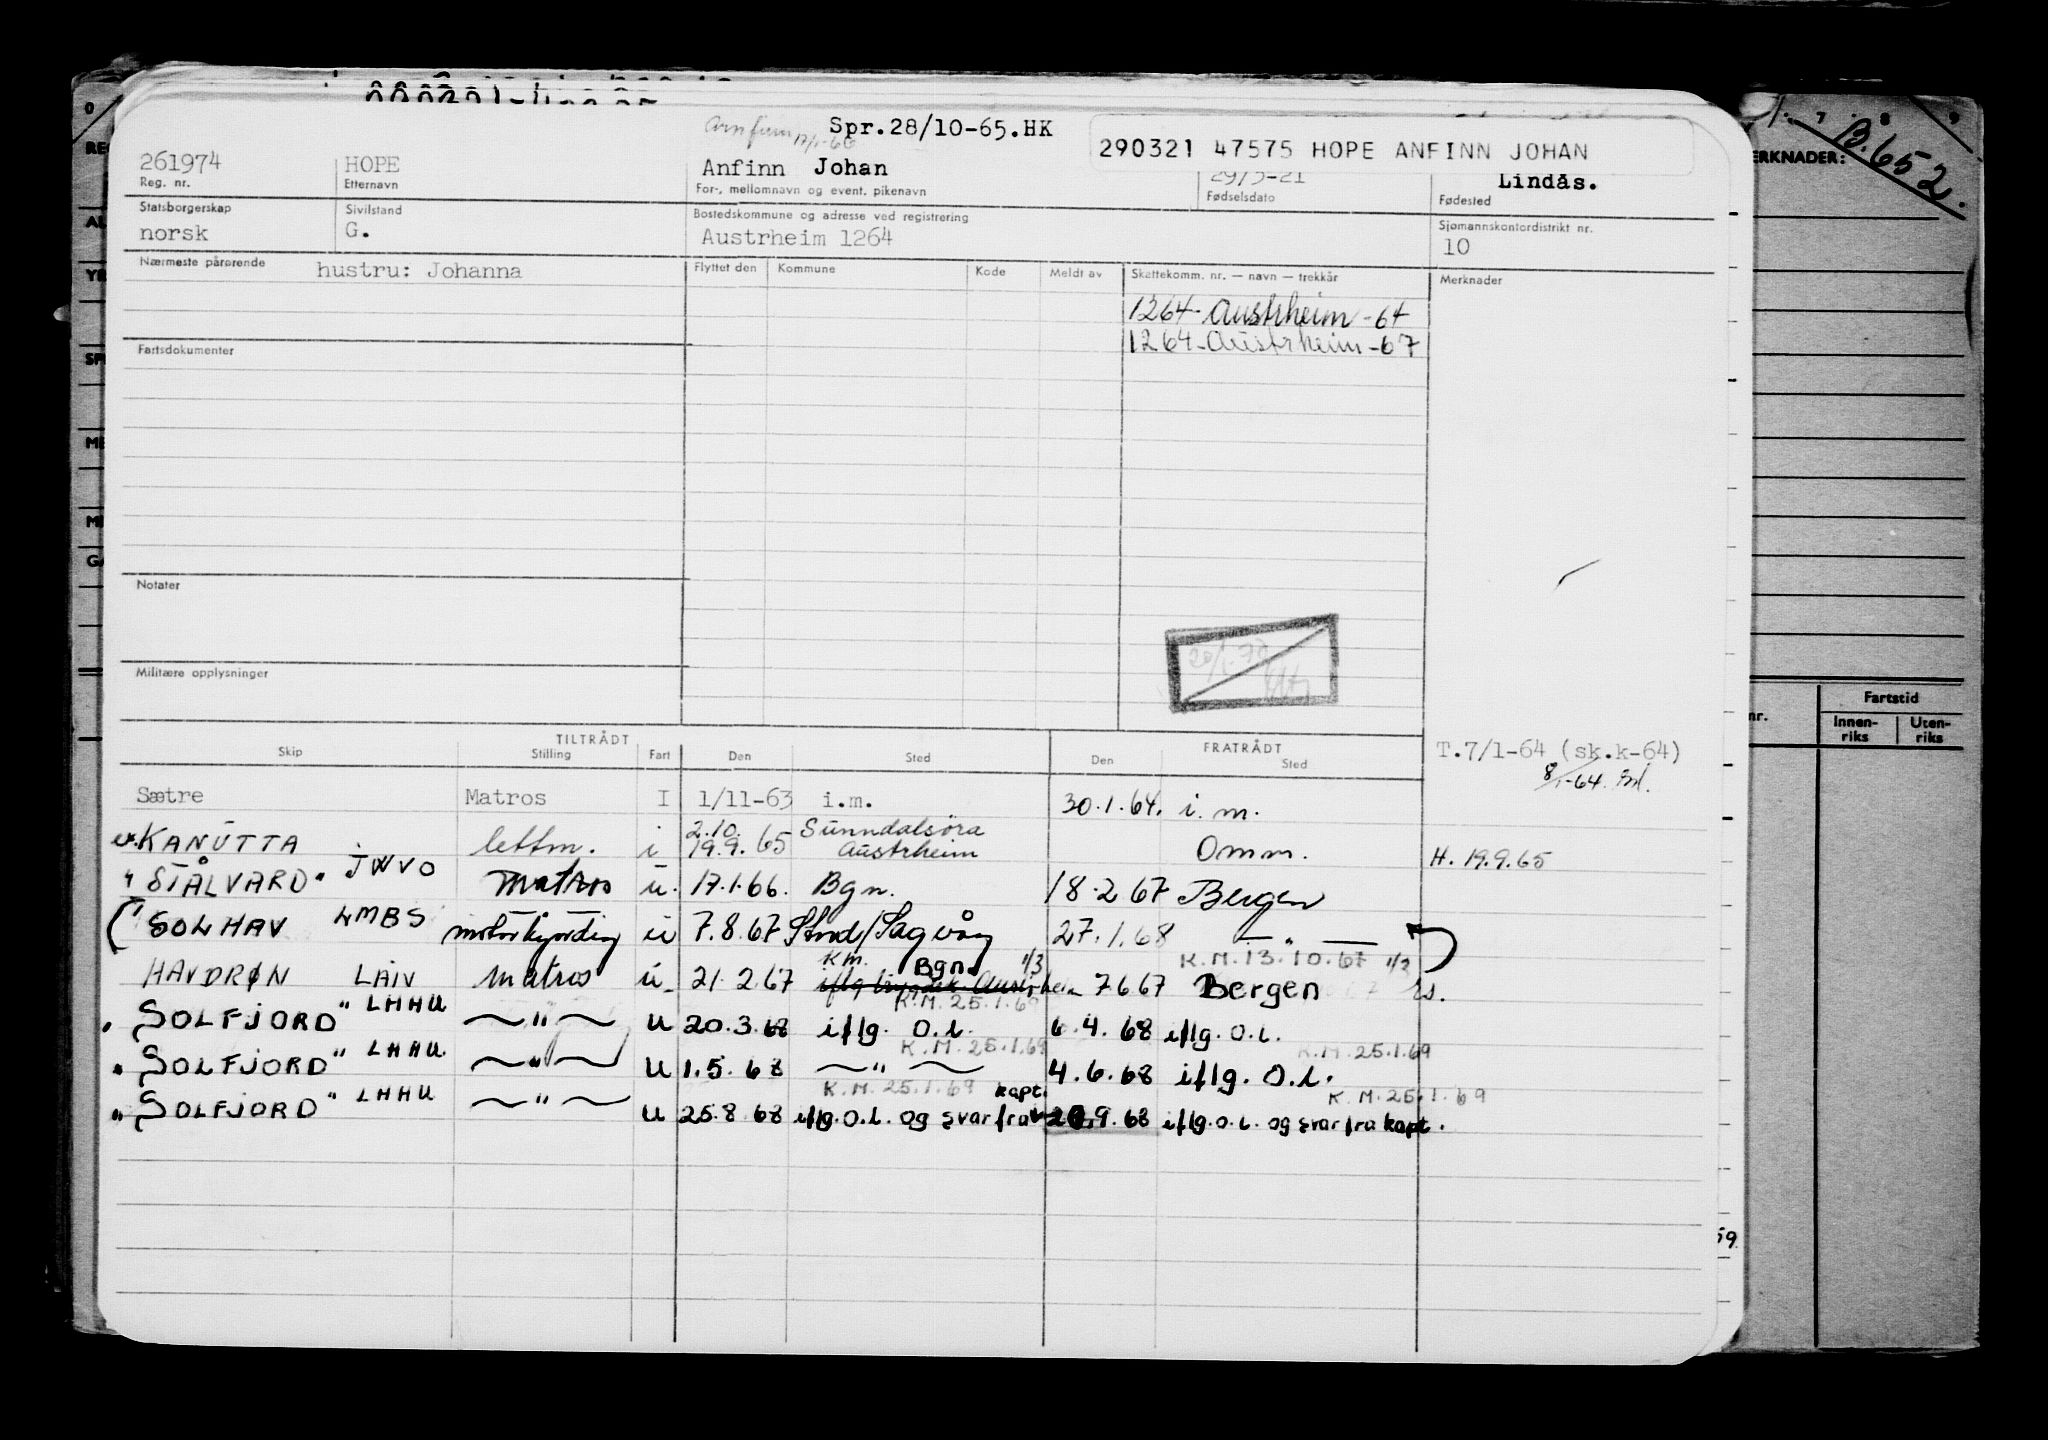 Spr.28/10-65.HK
290321 47575 HOPE ANFINN JOHAN
261974 HOPE Anfinn Johan 29/3-21 Lindås.
Reg. nr. Etternavn For-, mellomnavn og event. pikenavn Fødselsdato Fødested
Statsborgerskap Sivilstand Bostedskommune og adresse ved registrering Sjømannskontordistrikt nr.
norsk G. Austrheim 1264 10
Nærmeste pårørende hustru: Johanna Flyttet den Kommune Kode Meldt av Skattekomm. nr. — navn — trekkår Merknader
1264- Austrheim -64
1264- Austrheim -67
Fartsdokumenter
Notater
Militære opplysninger
TILTRÅDT FRATRÅDT
Skip Stilling Fart Den Sted Den Sted
T.7/1-64 (sk.k-64)
Sætre Matros I 1/11-63 i.m. 30.1.64. i.m.
2.10. Sunndalsöra
KANUTTA lettm. i 19.9.65 Austrheim Omm. H. 19.9.65
" STÅLVARD" JWVO Matros u. 17.1.66. Bgn. 18.2 67 Bergen
SOLHAV LMBS u 7.8.67 Stord/Sagvåg 27.1.68 — " —
K.m. Bgn. 1/3 K.M.13.10.67 1/3
HAVDRØN LAIV Matros u. 21.2.67 7667 Bergen
K.M. 25.1.69
" SOLFJORD" LHHU — " — u 20.3.68 iflg. O.L. 6.4.68 iflg. O.L.
K.M. 25.1.69 K.M.25.1.69
" SOLFJORD" LHHU. — " — u 1.5.68 — " — 4.6.68 iflg. O.L.
K.M. 25.1.69 kapt. K.M.25.1.69
" SOLFJORD" LHHU — " — u 25.8.68 iflg.O.L. og svar fra 9.68 iflg.O.L. og svar fra kapt.
B.652.
ERKNADER:
nr. Fartstid
Innen-riks Uten-riks
59.